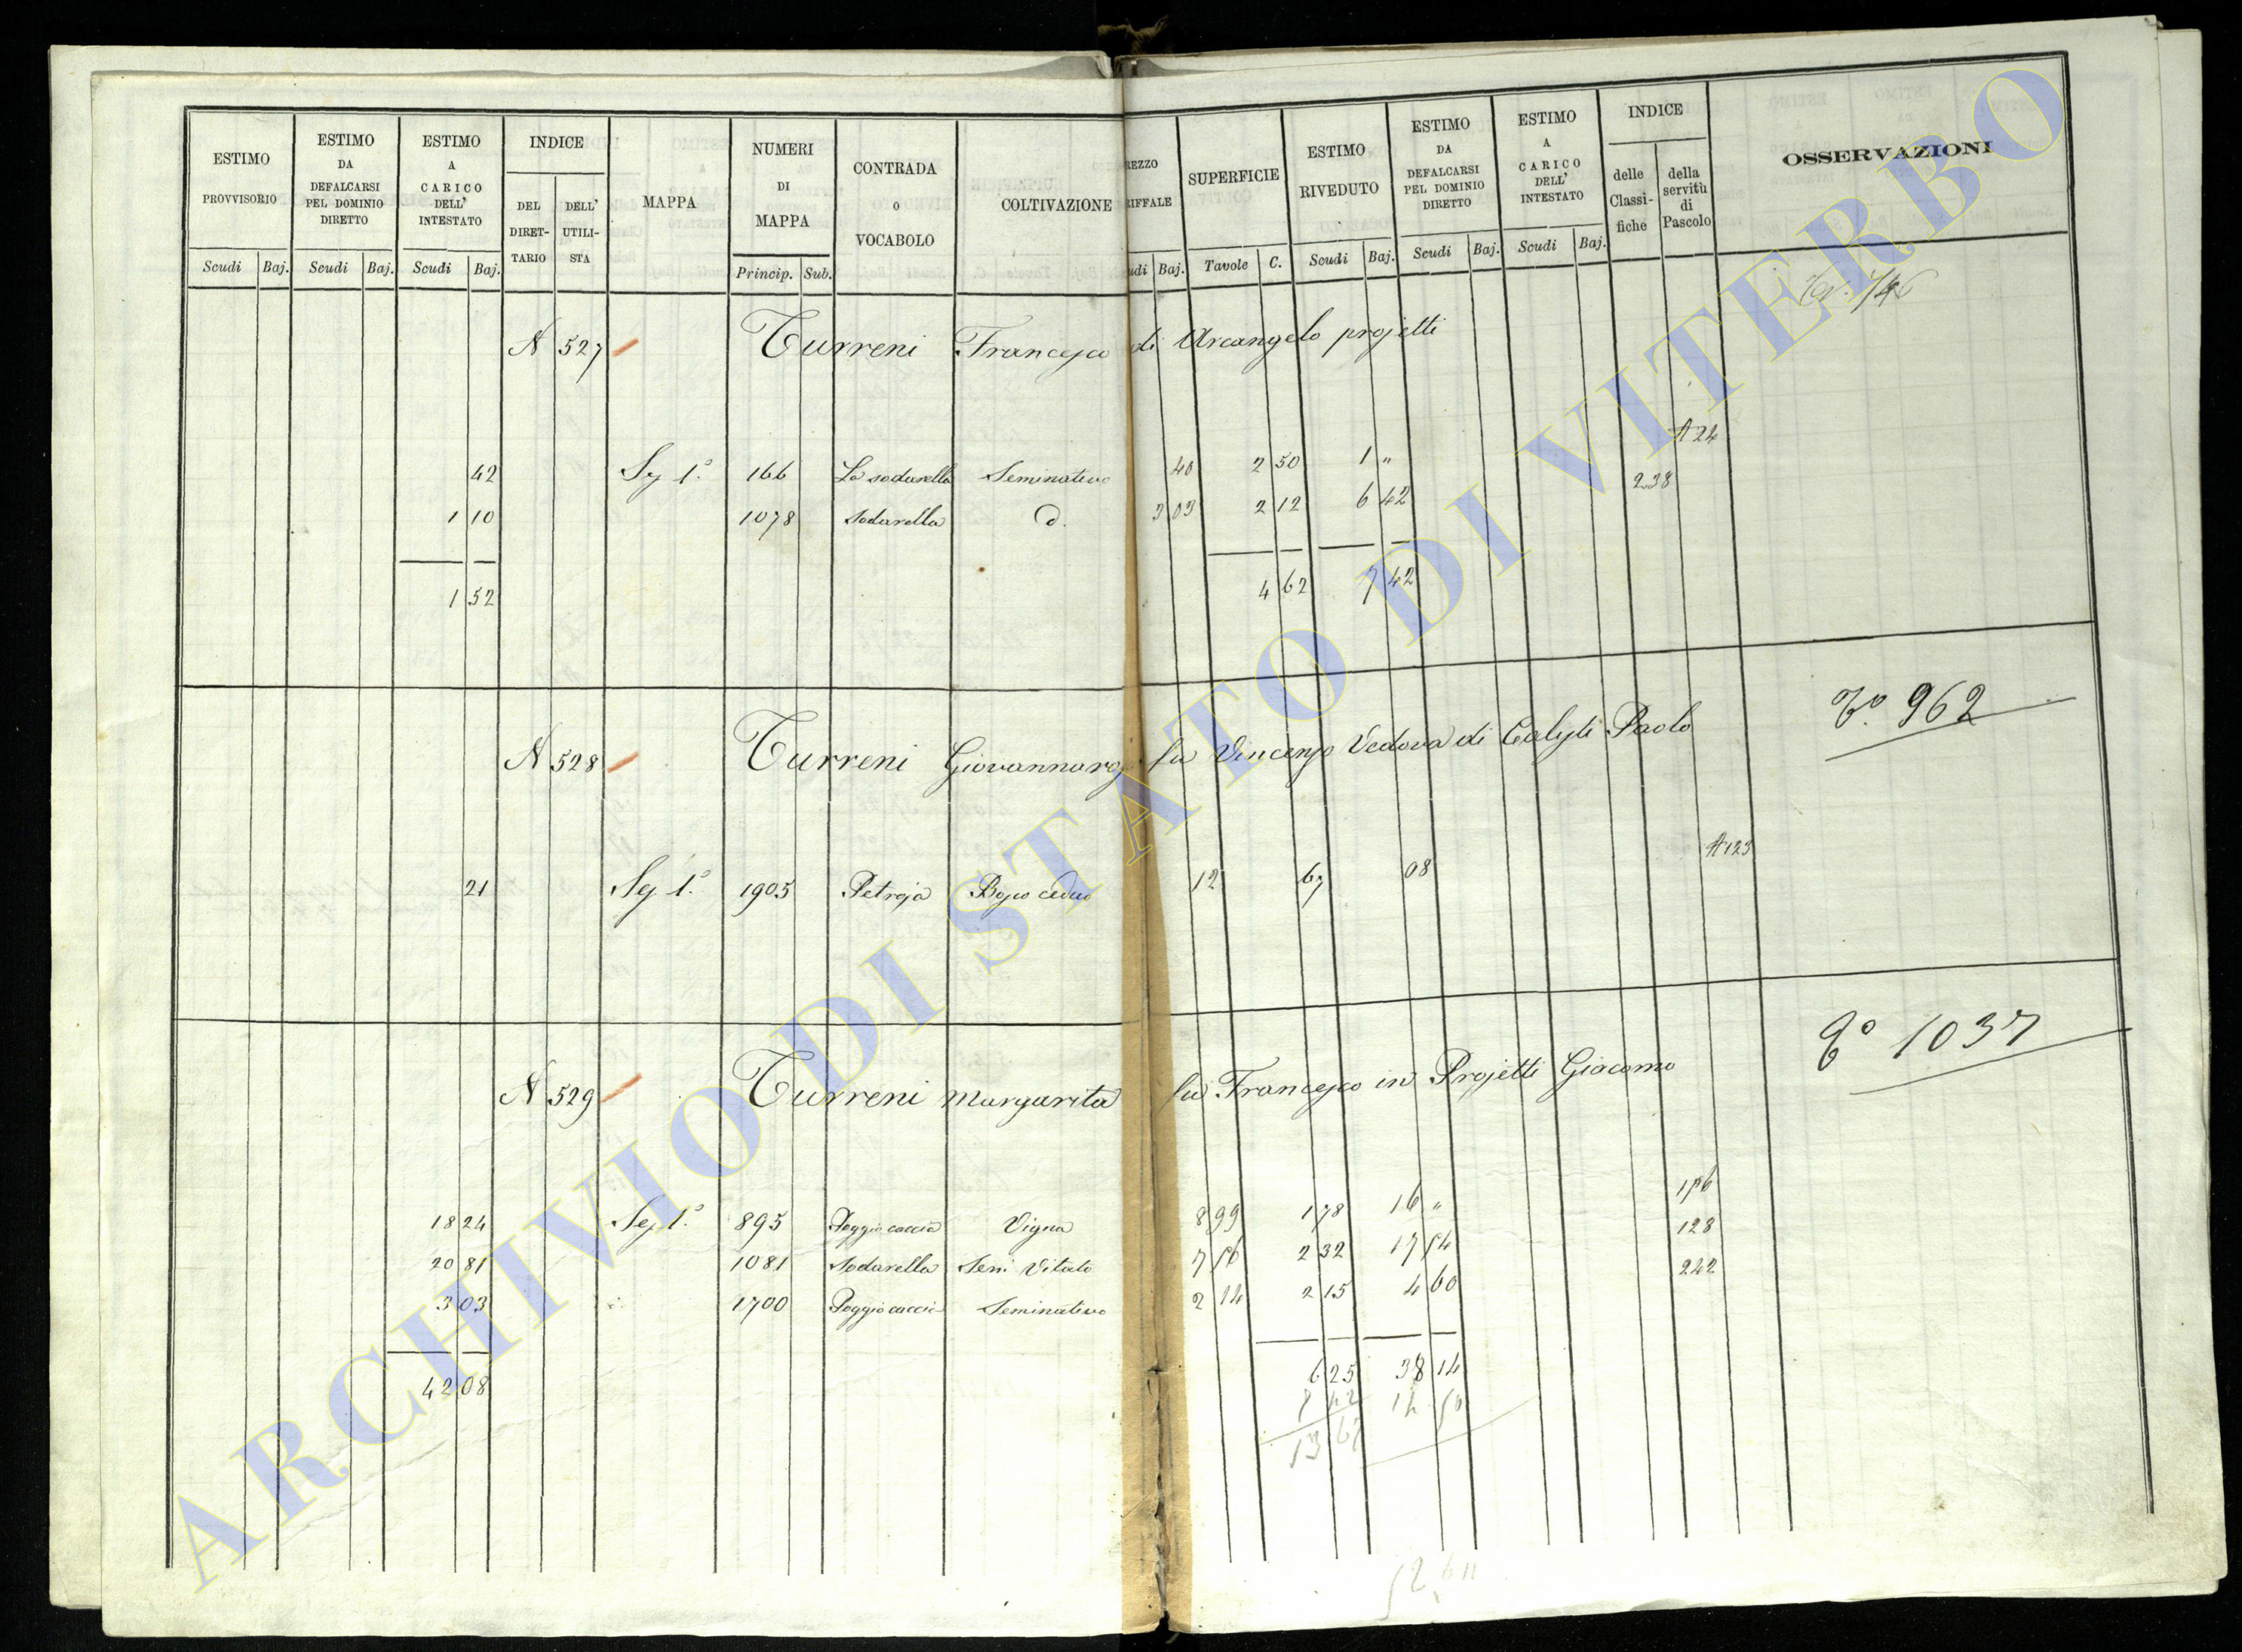 ESTIMO PROVVISORIO
ESTIMO DA DEFALCARSI PEL DOMINIO DIRETTO
ESTIMO A CARICO DELL' INTESTATO
INDICE
DEL DIRET- TARIO
DELL' UTILI- STA
MAPPA
NUMERI DI MAPPA
CONTRADA O VOCABOLO
COLTIVAZIONE
REZZO RIFFALE
SUPERFICIE
ESTIMO RIVEDUTO
ESTIMO DA DEFALCARSI PEL DOMINIO DIRETTO
ESTIMO A CARICO DELL' INTESTATO
INDICE
delle Classi- fiche
della servitù di Pascolo
OSSERVAZIONI
Scudi Baj. Scudi Baj. Scudi Baj. Princip. Sub. udi Baj. Tavole C. Scudi Baj. Scudi Baj. Scudi Baj.
N 527 Turreni Francesco di Arcangelo projetti
A 24
42 Sez 1.a 166 La sodarella Seminativo 40 2 50 1 "
238
1 10 1078 Sodarella d. 3 03 2 12 6 42
1 52 4 62 7 42
N 528 Turreni fu Vincenzo Vedova di Paolo 962
A 123
21 Sez 1.a 1905 Petroja Bosco ceduo 12 67 08
N 529 Turreni Margarita fu Francesco in Projetti Giacomo 1037
18 24 Sez 1.a 895 Poggio caccia Vigna 8 99 1 78 16 "
128
20 81 1081 Sodarella Semi Vitato 2 32
242
3 03 1700 Poggio caccia Seminativo 2 14 2 15 4 60
42 08 6 25 38 14
ARCHIVIO DI STATO DI VITERBO